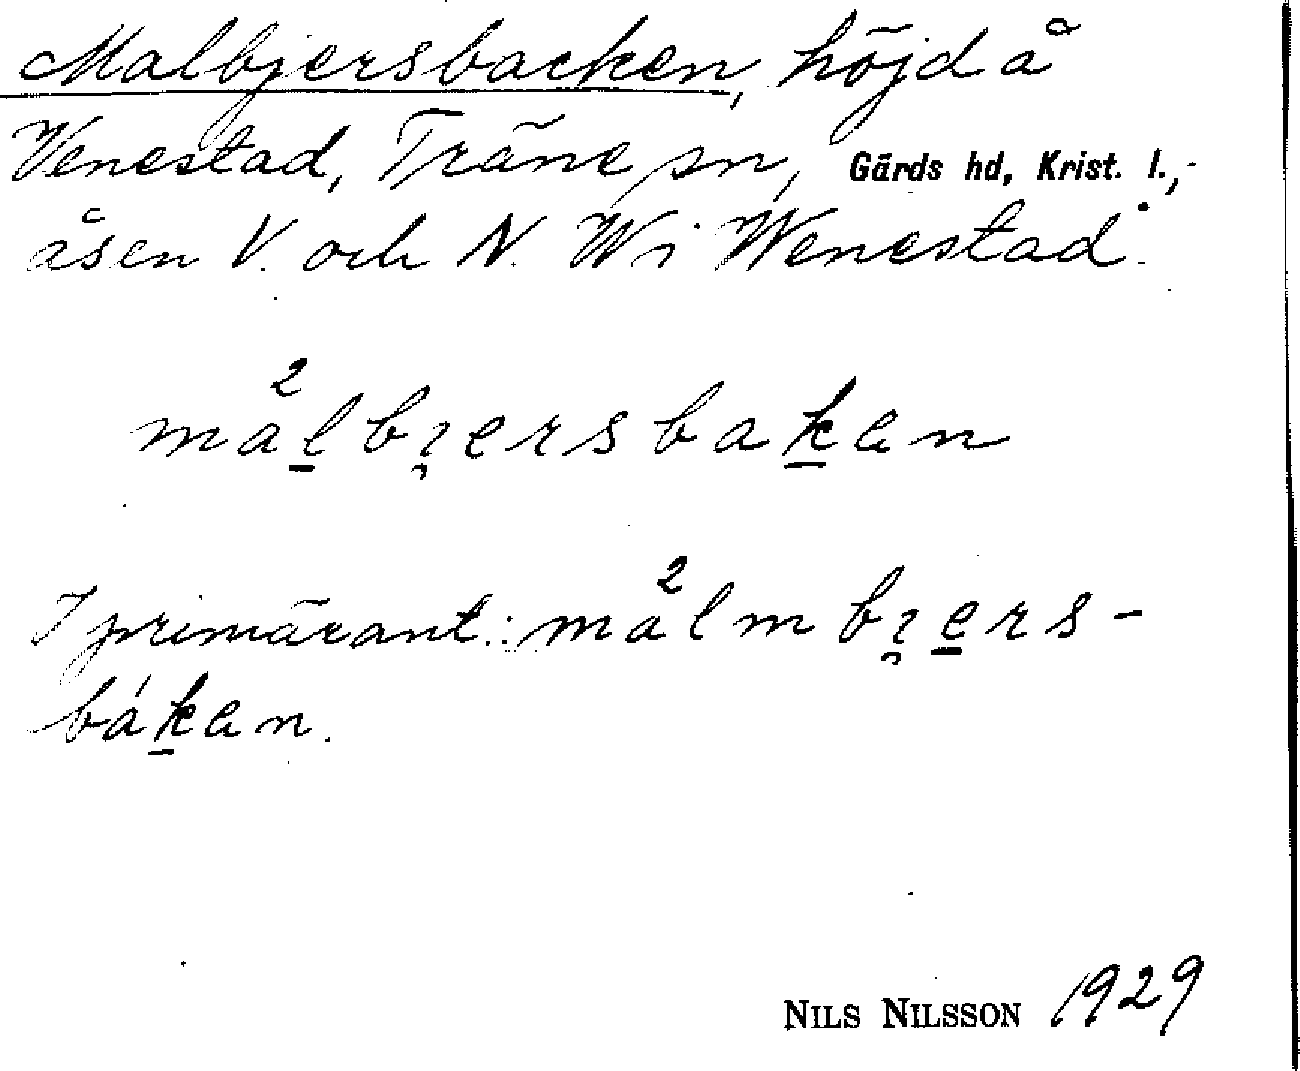 Malbjersbacken, höjd å
Venestad, Träne sn, Gärds hd, Krist. l.,-
åsen V. och N. W i Wenestad.
ma²l̲bi̯ersbak̲en
I primärant.: ma²lmbi̯e̲rs-
bák̲en.
NILS NILSSON 1929